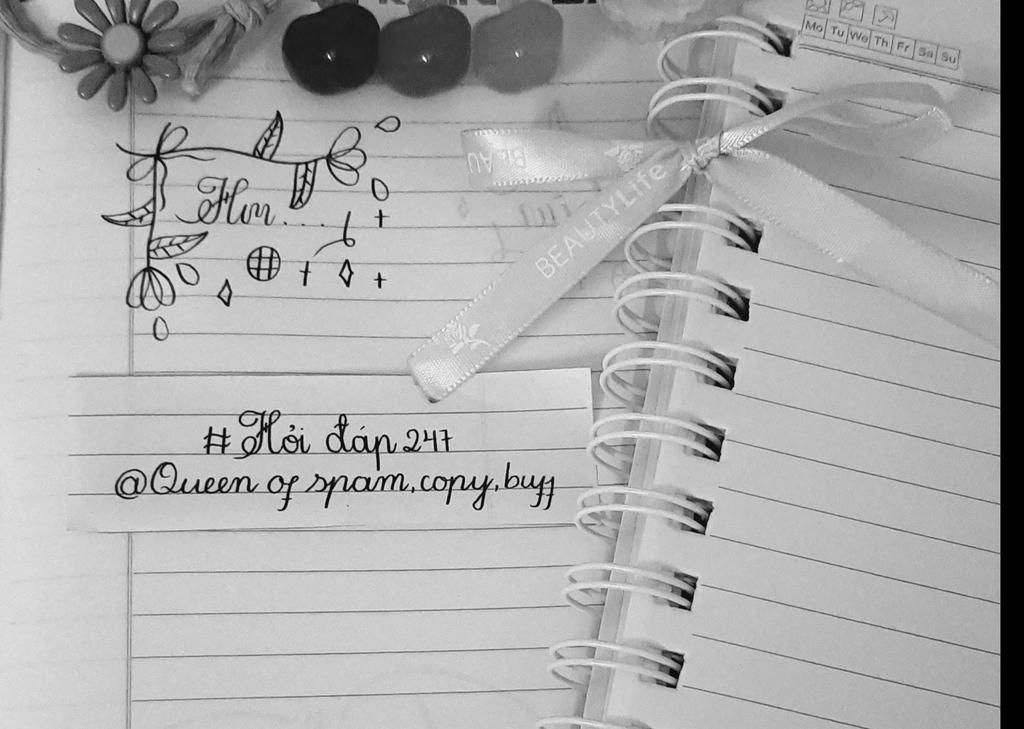 Mo Tu We Th Fr Sa Su
BEAU
BEAUTYLife
Hm....
#Hỏi đáp 247
@Queen of spam, copy, buff